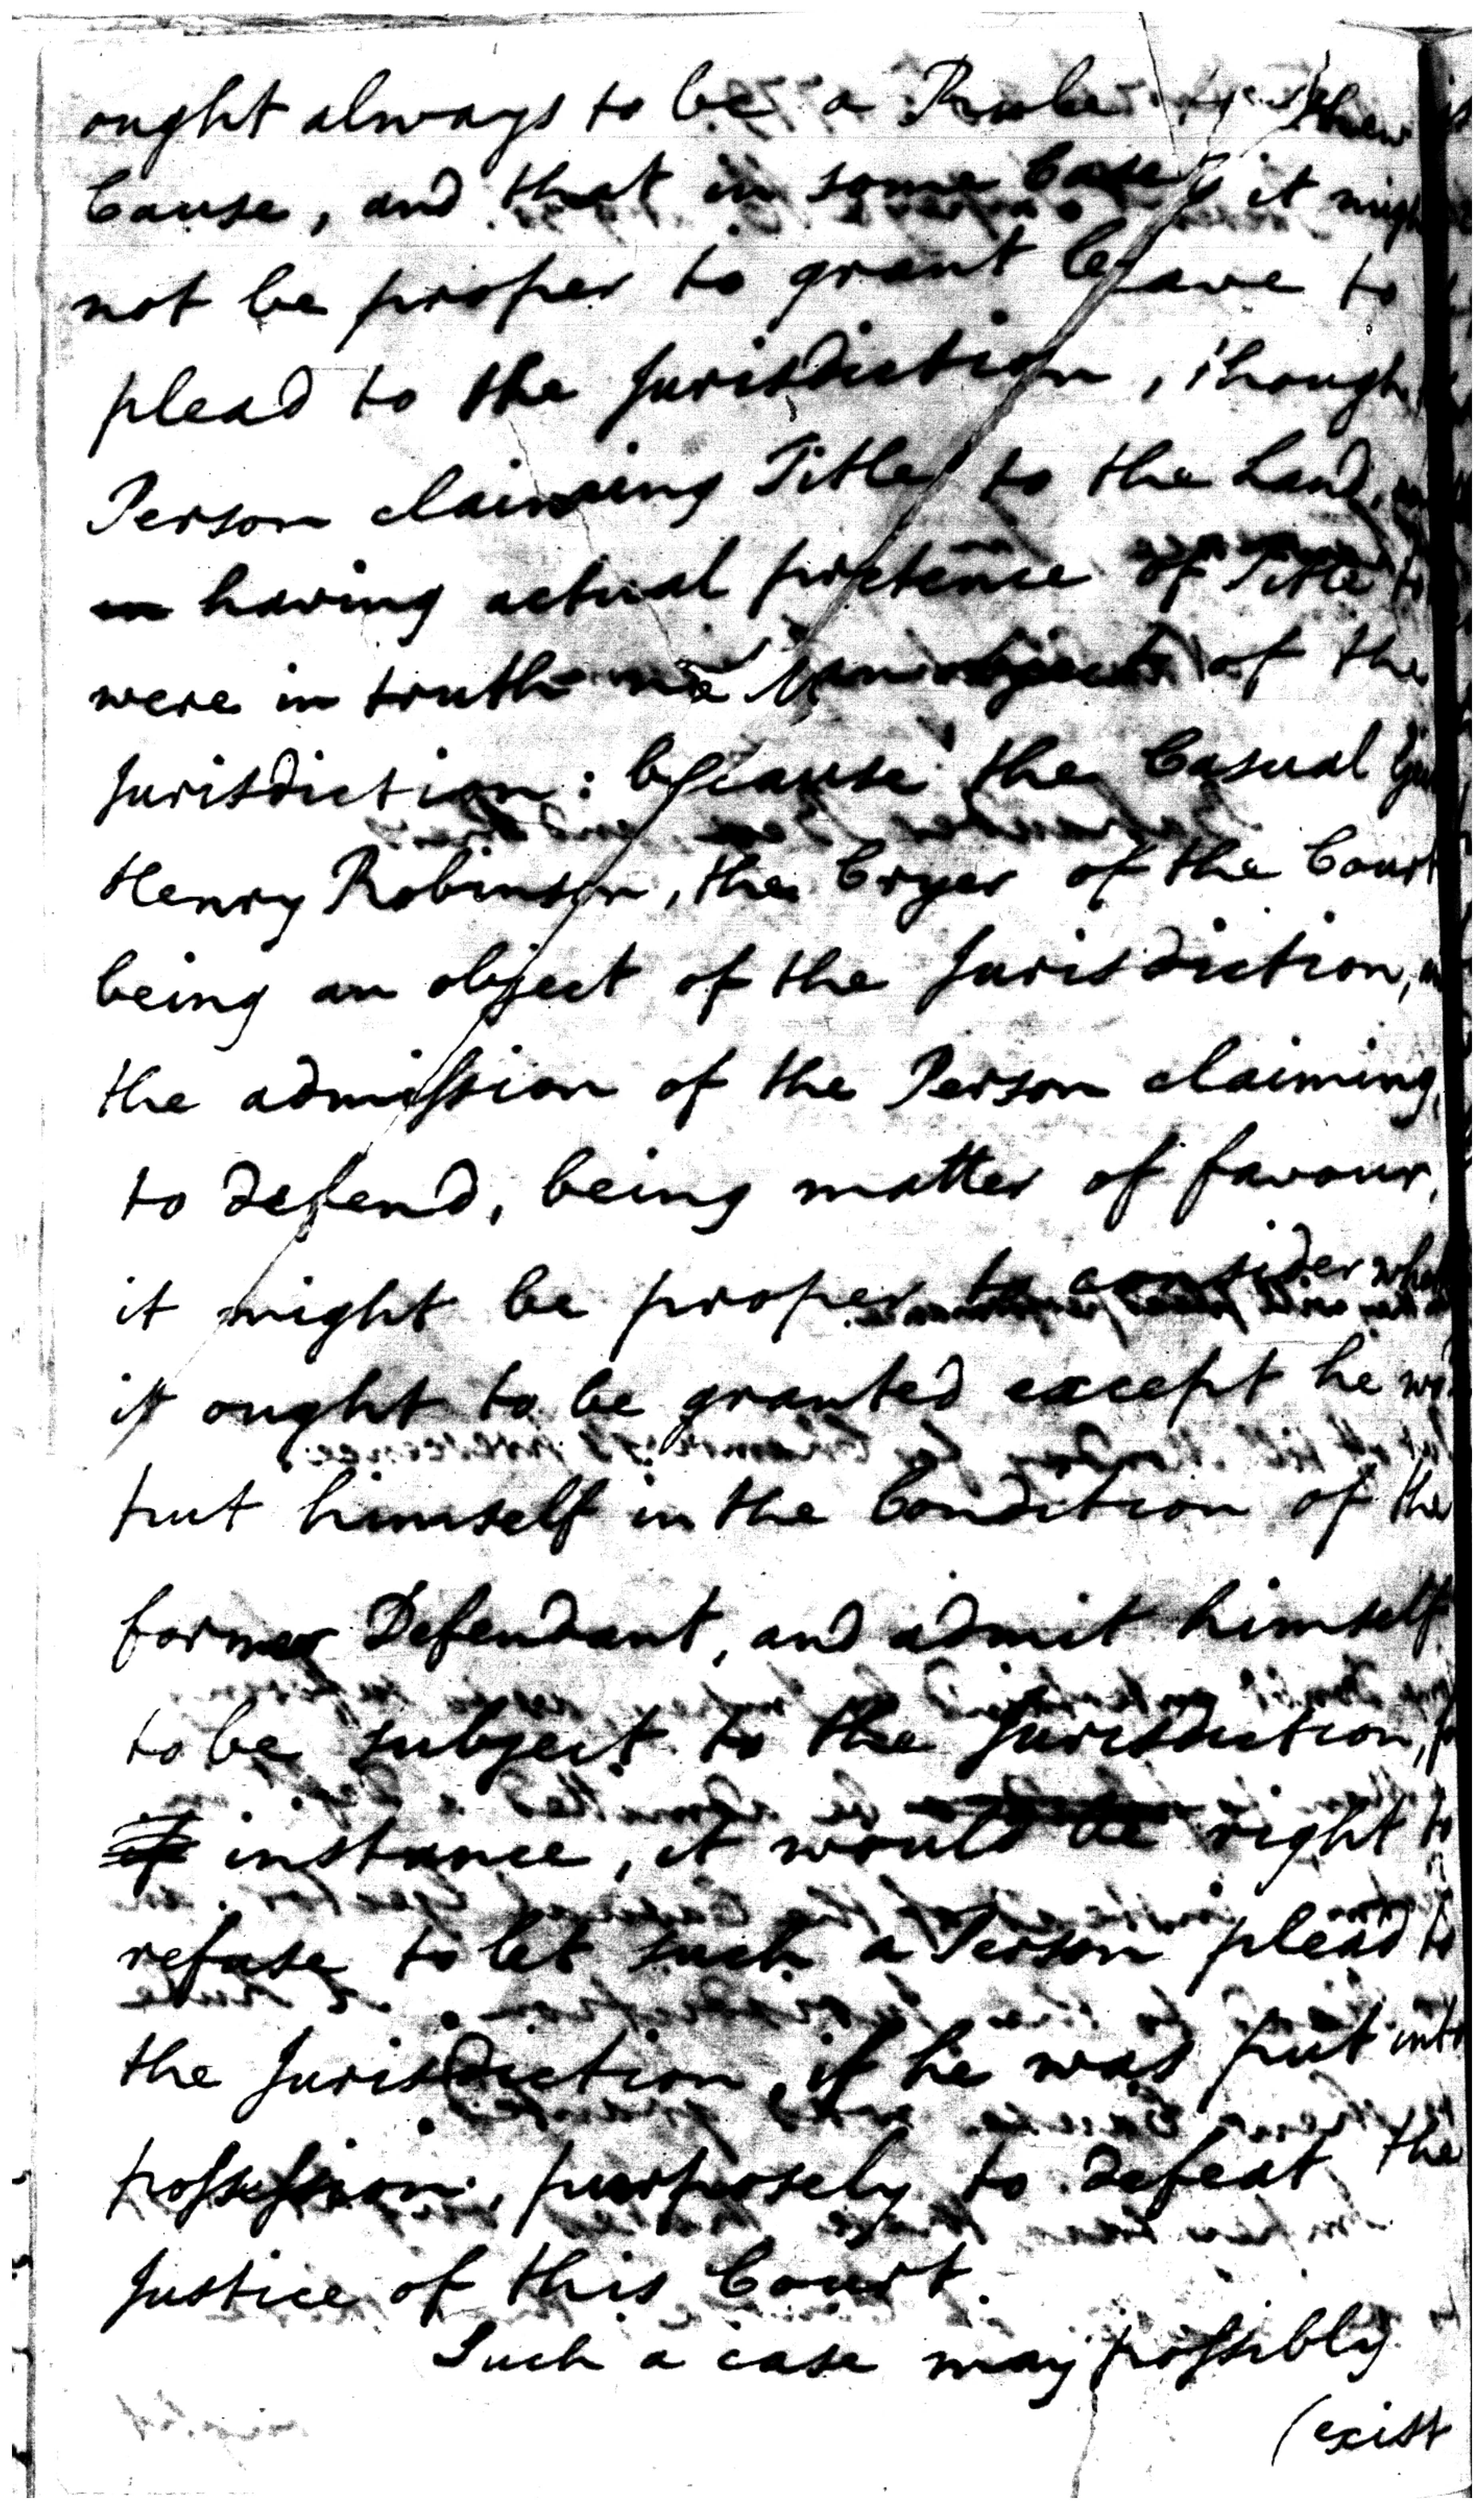 ought always to be a Rule to shew
Cause, and that in some Cases it migh
not be proper to grant leave to
plead to the Jurisdiction, though
Person claiming Title to the Land,
having actual pretence of Title to
were in truth no object of the
Jurisdiction: because the Casual
Henry Robinson, the Cryer of the Court
being an object of the Jurisdiction,
the admission of the Person claiming,
to defend, being matter of favour,
it might be proper to consider whe
it ought to be granted except he wd
put himself in the Condition of the
former Defendant, and admit himself
to be subject to the Jurisdiction, fo
if instance, it would be right to
refuse to let such a Person plead to
the Jurisdiction, if he was put into
possession, purposely to defeat the
Justice of this Court.
Such a case may possibly
(exist